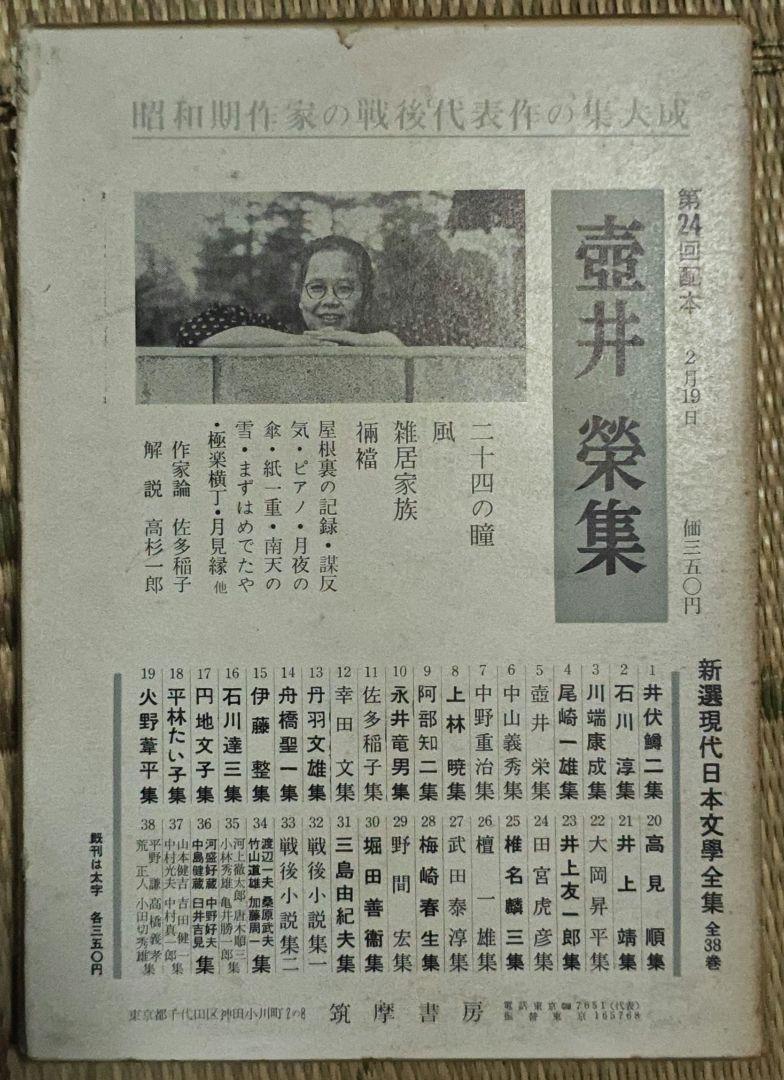 昭和期作家の戦後代表作の集大成
第24回配本 2月19日 価三五〇円
壺井 榮集
二十四の瞳
風
雑居家族
裲襠
屋根裏の記録・謀反
気・ピアノ・月夜の
傘・紙一重・南天の
雪・まずはめでたや
・極楽横丁・月見縁 他
作家論 佐多稲子
解説 高杉一郎
新選現代日本文學全集 全38巻
1 井伏鱒二集
2 石川淳集
3 川端康成集
4 尾崎一雄集
5 壺井栄集
6 中山義秀集
7 中野重治集
8 上林暁集
9 阿部知二集
10 永井竜男集
11 佐多稲子集
12 幸田文集
13 丹羽文雄集
14 舟橋聖一集
15 伊藤整集
16 石川達三集
17 円地文子集
18 平林たい子集
19 火野葦平集
20 高見順集
21 井上靖集
22 大岡昇平集
23 井上友一郎集
24 田宮虎彦集
25 椎名麟三集
26 檀一雄集
27 武田泰淳集
28 梅崎春生集
29 野間宏集
30 堀田善衞集
31 三島由紀夫集
32 戦後小説集一
33 戦後小説集二
34 渡辺一夫 桑原武夫
竹山道雄 加藤周一 集
35 河上徹太郎 唐木順三
小林秀雄 亀井勝一郎 集
36 河盛好蔵 中野好夫
中島健蔵 臼井吉見 集
37 山本健吉 吉田健一
中村光夫 中村真一郎 集
38 平野謙 高橋義孝
荒正人 小田切秀雄 集
既刊は太字 各三五〇円
東京都千代田区神田小川町2の8 筑摩書房 電話東京(29)7651(代表)
振替東京165768